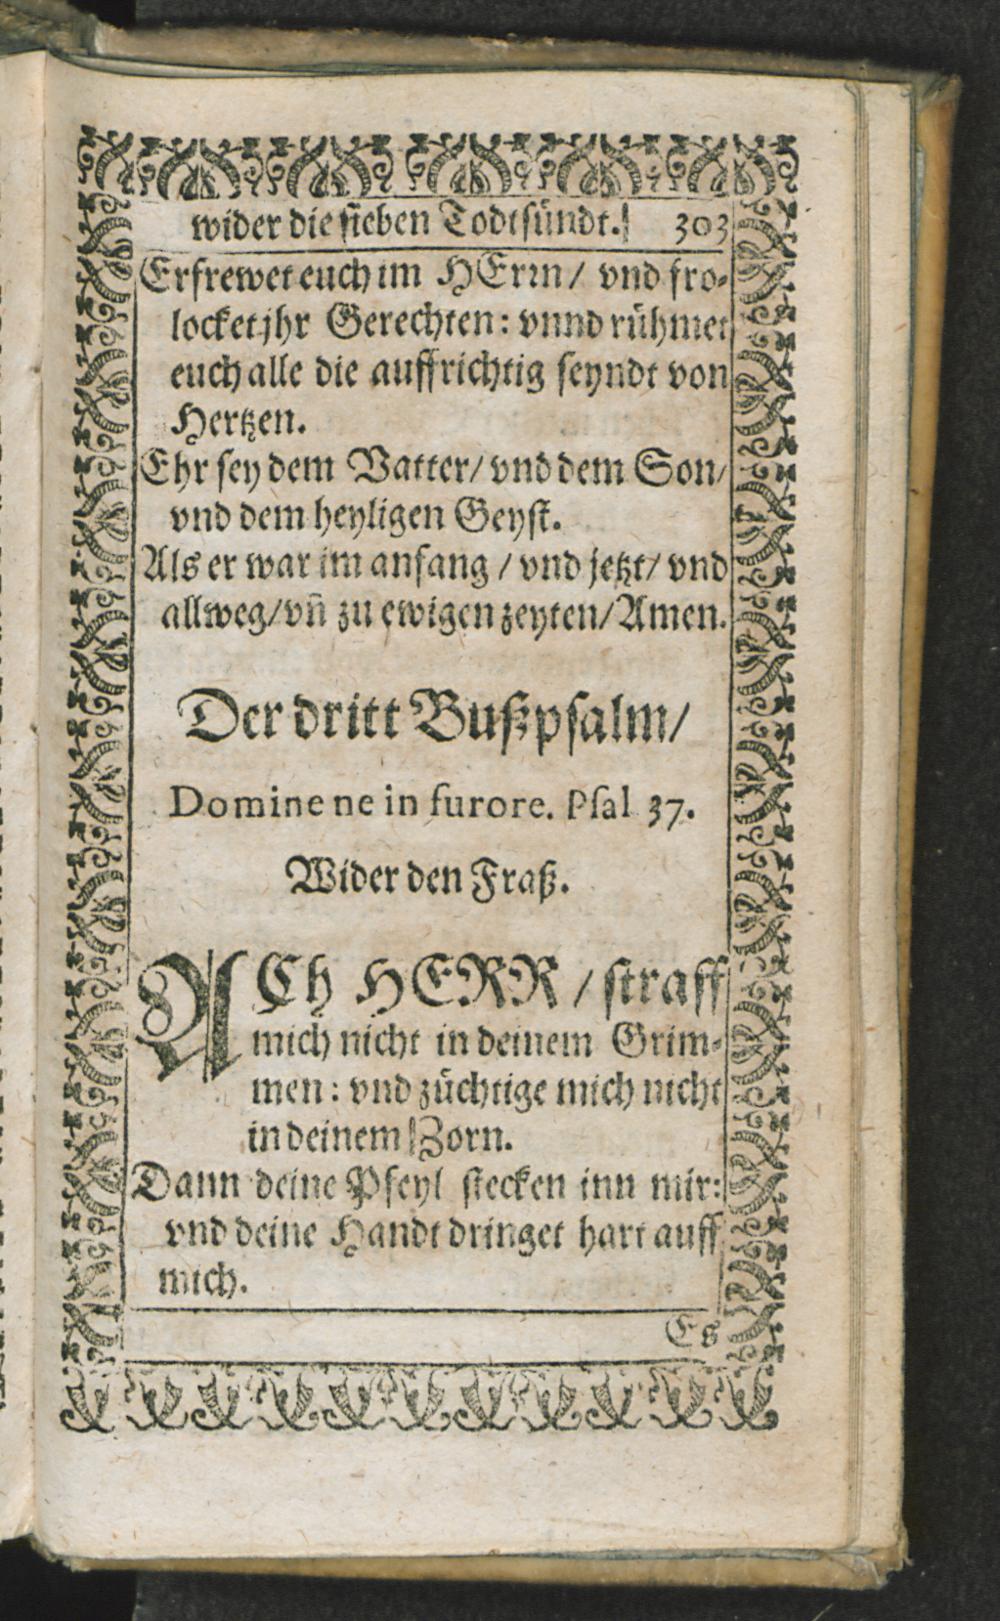 wider die sieben Todtsündt. 303
Erfrewet euch im HErrn/ vnd fro-
locket jhr Gerechten: vnnd rühmet
euch alle die auffrichtig seyndt von
Hertzen.
Ehr sey dem Vatter/ vnd dem Son/
vnd dem heyligen Geyst.
Als er war im anfang / vnd jetzt/ vnd
allweg/ vn̄ zu ewigen zeyten/ Amen.
Der dritt Bußpsalm/
Domine ne in furore. Psal 37.
Wider den Fraß.
ACh HERR / straff
mich nicht in deinem Grim-
men: vnd züchtige mich nicht
in deinem Zorn.
Dann deine Pfeyl stecken inn mir:
vnd deine Handt dringet hart auff
mich.
Es